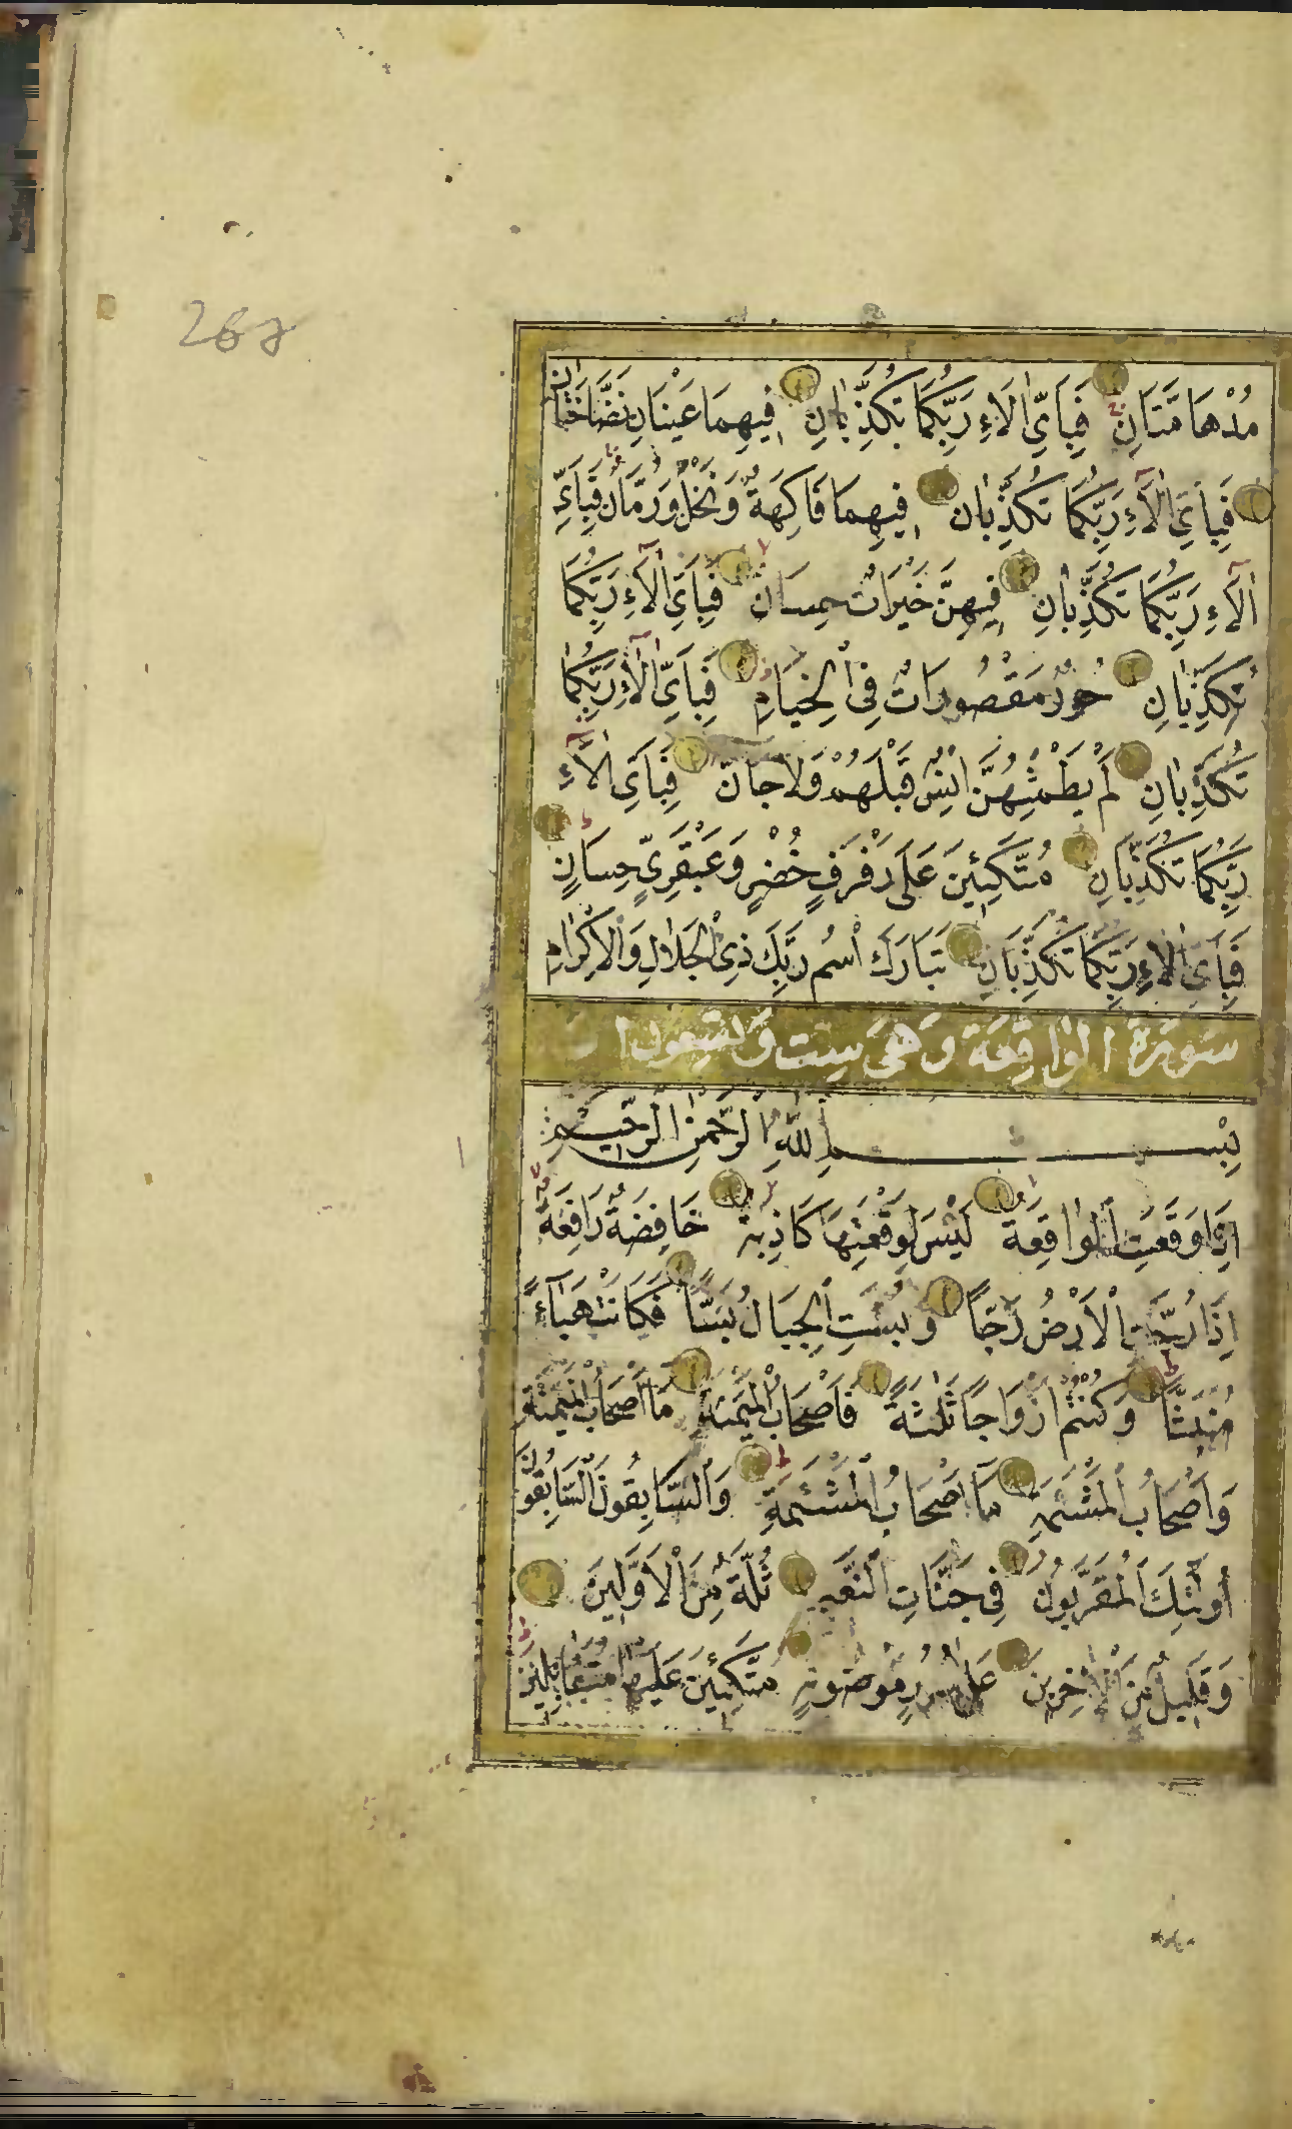 268
مُدْهَامَّتَانِ فَبِاَىِّ اٰلَاءِ رَبِّكُمَا تُكَذِّبَانِ فِيهِمَا عَيْنَانِ نَضَّاخَتَانِ
فَبِاَىِّ اٰلَاءِ رَبِّكُمَا تُكَذِّبَانِ فِيهِمَا فَاكِهَةٌ وَنَخْلٌ وَرُمَّانٌ فَبِاَىِّ
اٰلَاءِ رَبِّكُمَا تُكَذِّبَانِ فِيهِنَّ خَيْرَاتٌ حِسَانٌ فَبِاَىِّ اٰلَاءِ رَبِّكُمَا
تُكَذِّبَانِ حُورٌ مَقْصُورَاتٌ فِى الْخِيَامِ فَبِاَىِّ اٰلَاءِ رَبِّكُمَا
تُكَذِّبَانِ لَمْ يَطْمِثْهُنَّ اِنْسٌ قَبْلَهُمْ وَلَا جَانٌّ فَبِاَىِّ اٰلَاءِ
رَبِّكُمَا تُكَذِّبَانِ مُتَّكِئِينَ عَلٰى رَفْرَفٍ خُضْرٍ وَعَبْقَرِىٍّ حِسَانٍ
فَبِاَىِّ اٰلَاءِ رَبِّكُمَا تُكَذِّبَانِ تَبَارَكَ اسْمُ رَبِّكَ ذِى الْجَلَالِ وَالْاِكْرَامِ
سُورَةُ الْوَاقِعَةِ وَهِىَ سِتٌّ وَتِسْعُونَ
بِسْمِ اللّٰهِ الرَّحْمٰنِ الرَّحِيمِ
اِذَا وَقَعَتِ الْوَاقِعَةُ لَيْسَ لِوَقْعَتِهَا كَاذِبَةٌ خَافِضَةٌ رَافِعَةٌ
اِذَا رُجَّتِ الْاَرْضُ رَجًّا وَبُسَّتِ الْجِبَالُ بَسًّا فَكَانَتْ هَبَاءً
مُنْبَثًّا وَكُنْتُمْ اَزْوَاجًا ثَلٰثَةً فَاَصْحَابُ الْمَيْمَنَةِ مَا اَصْحَابُ الْمَيْمَنَةِ
وَاَصْحَابُ الْمَشْئَمَةِ مَا اَصْحَابُ الْمَشْئَمَةِ وَالسَّابِقُونَ السَّابِقُونَ
اُولٰئِكَ الْمُقَرَّبُونَ فِى جَنَّاتِ النَّعِيمِ ثُلَّةٌ مِنَ الْاَوَّلِينَ
وَقَلِيلٌ مِنَ الْاٰخِرِينَ عَلٰى سُرُرٍ مَوْضُونَةٍ مُتَّكِئِينَ عَلَيْهَا مُتَقَابِلِينَ